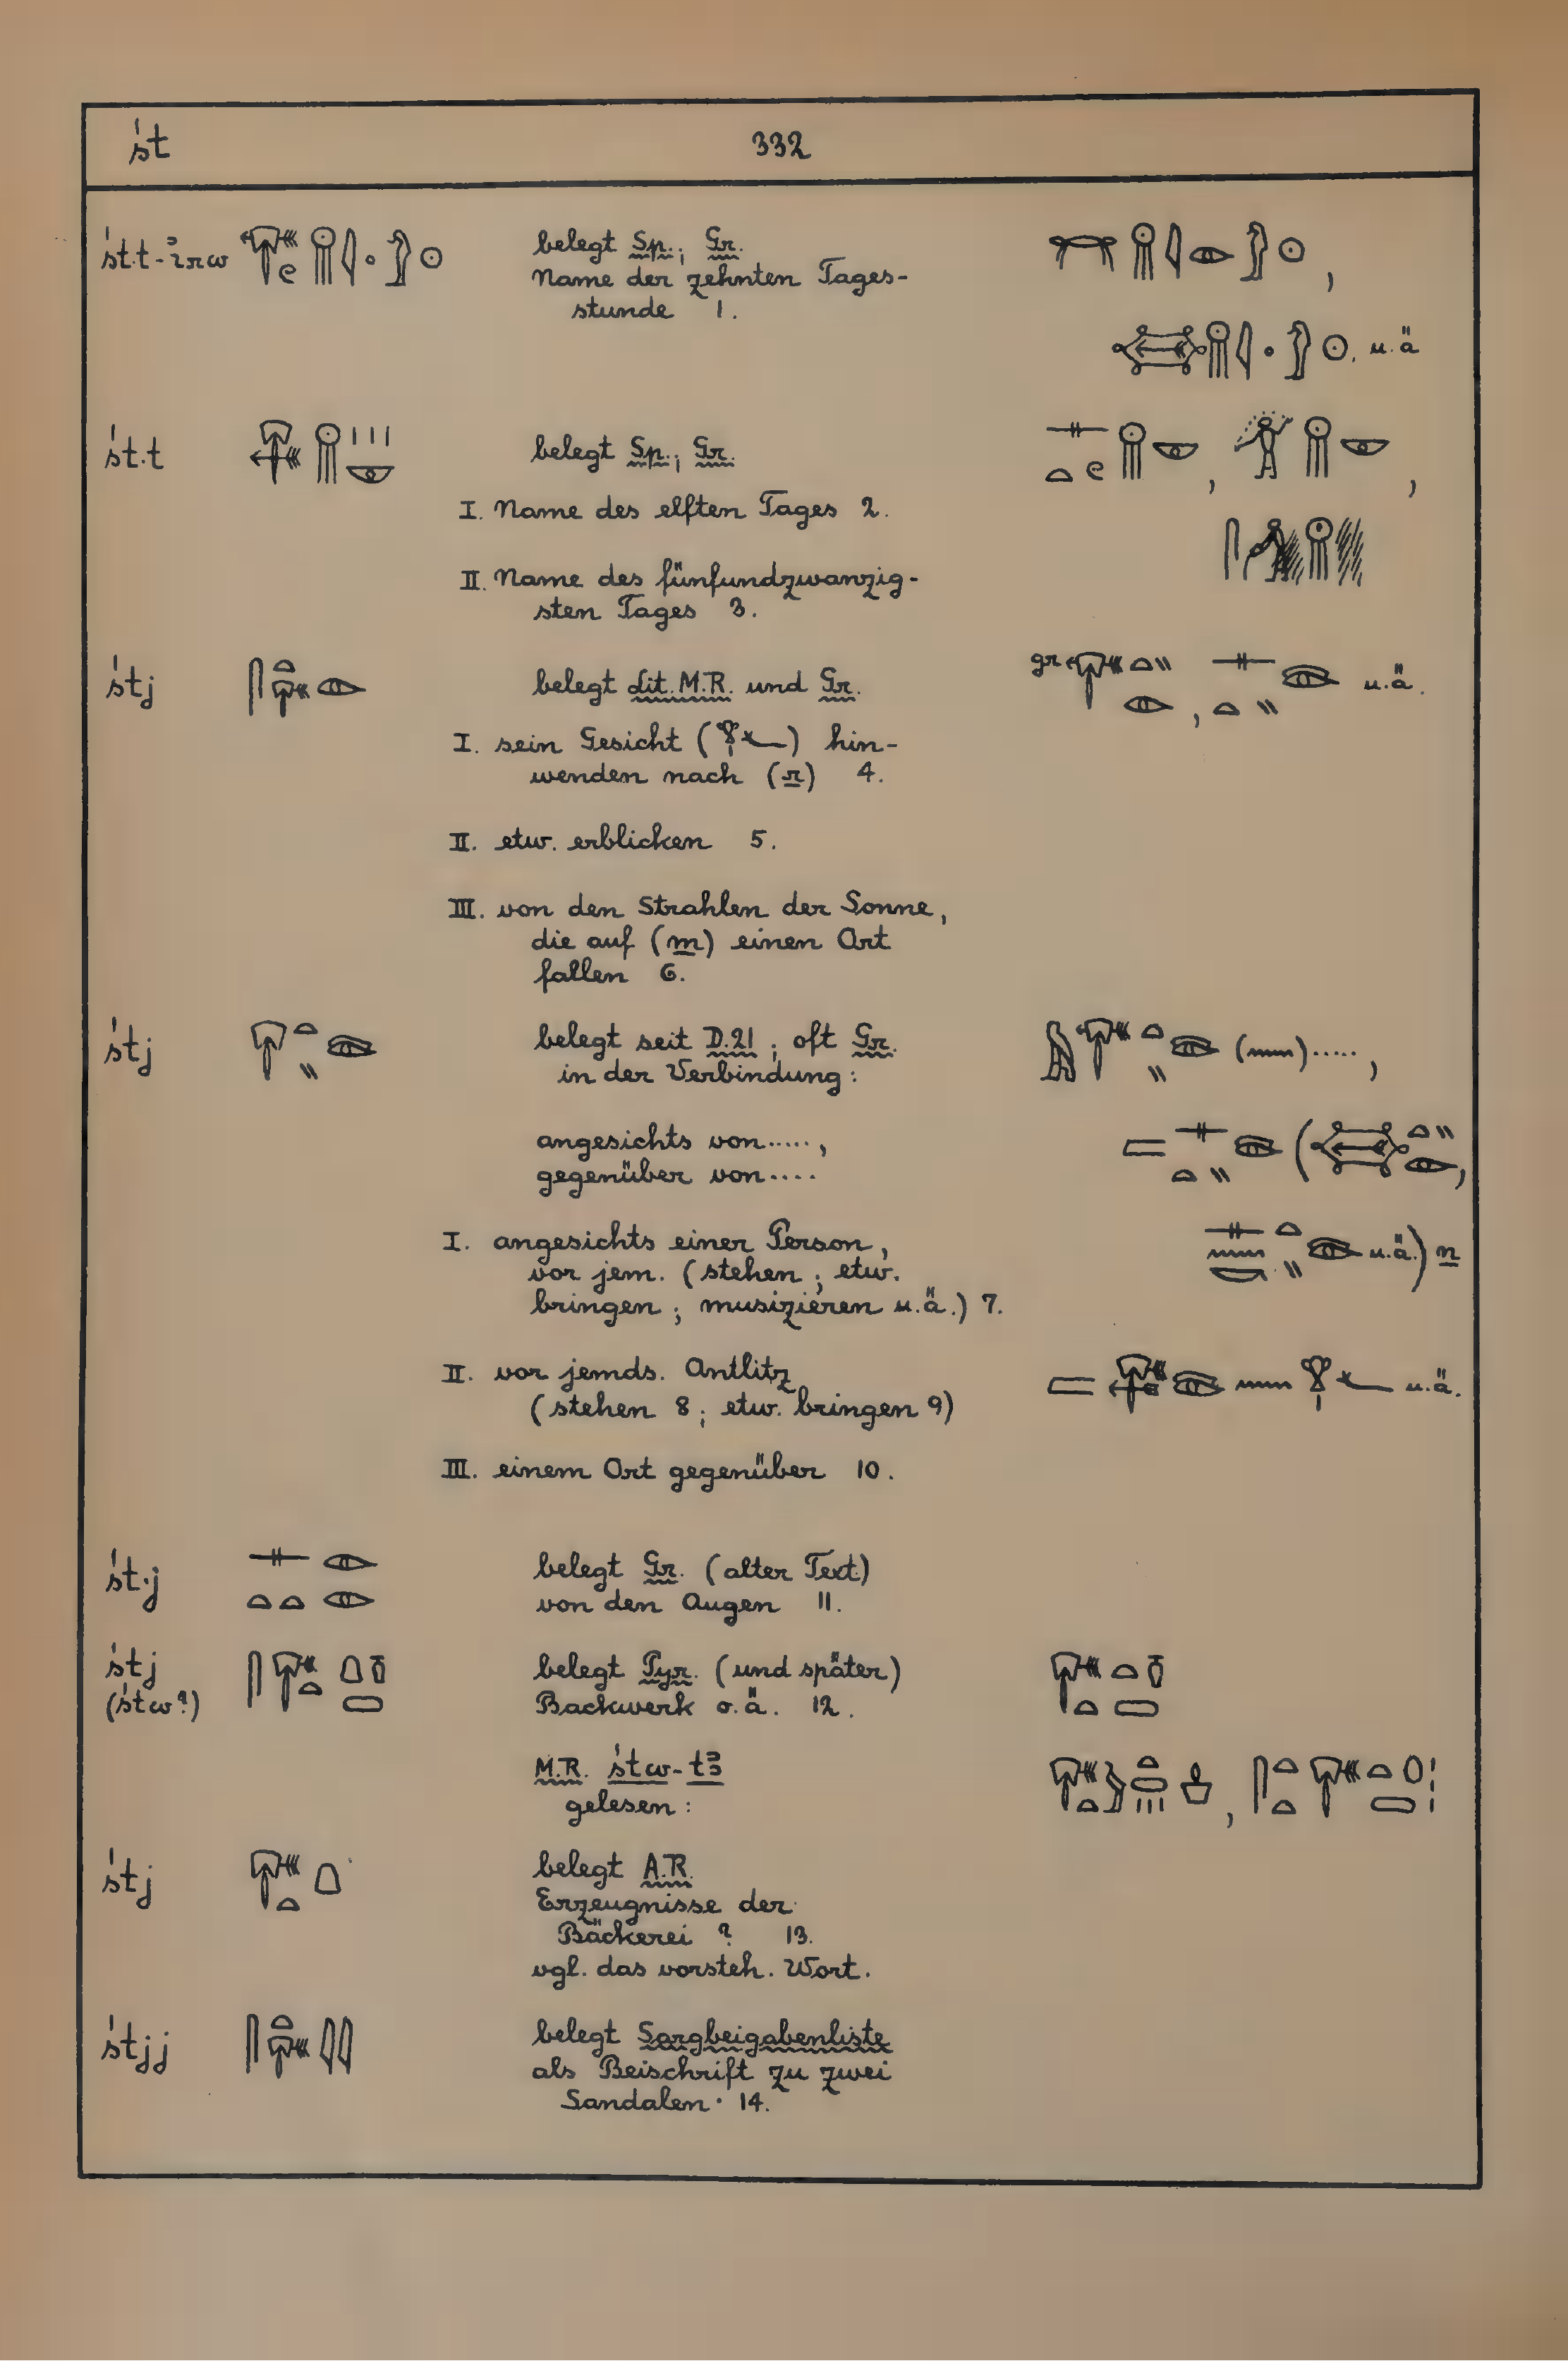 śt 332
śt.t-irw belegt Sp.; Gr.
Name der zehnten Tages-
stunde 1.
u.ä
śt.t belegt Sp.; Gr.
I. Name des elften Tages 2.
II. Name des fünfundzwanzig-
sten Tages 3.
śtj belegt Lit. M.R. und Gr. gr u.ä.
I. sein Gesicht ( ) hin-
wenden nach (r) 4.
II. etw. erblicken 5.
III. von den Strahlen der Sonne,
die auf (m) einen Ort
fallen 6.
śtj belegt seit D.21; oft Gr.
in der Verbindung:
angesichts von.....,
gegenüber von....
I. angesichts einer Person, u.ä.) n
vor jem. (stehen; etw.
bringen; musizieren u.ä.) 7.
II. vor jemds. Antlitz u.ä.
(stehen 8; etw. bringen 9)
III. einem Ort gegenüber 10.
śt.j belegt Gr. (alter Text)
von den Augen 11.
śtj belegt Pyr. (und später)
(śtw?) Backwerk o.ä. 12.
M.R. śtw-t3
gelesen:
śtj belegt A.R.
Erzeugnisse der
Bäckerei ? 13.
vgl. das vorsteh. Wort.
śtjj belegt Sargbeigabenliste
als Beischrift zu zwei
Sandalen. 14.